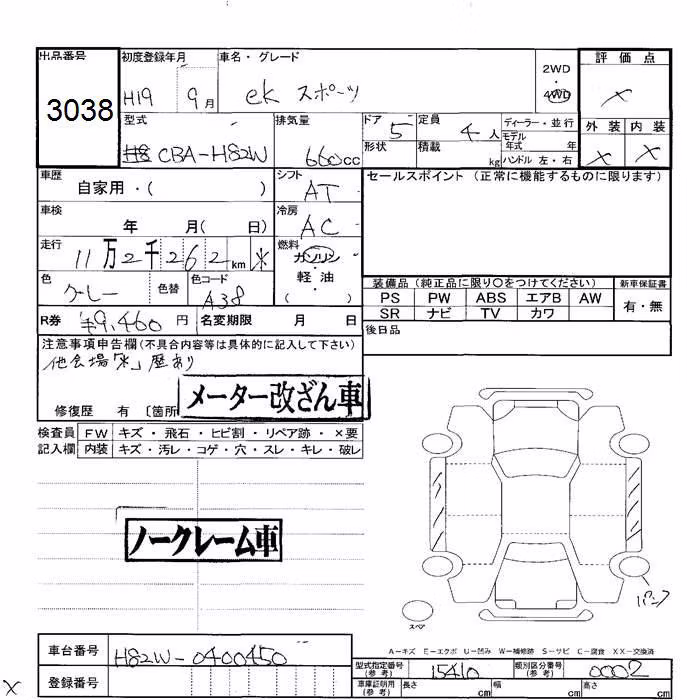 出品番号 初度登録年月 車名・グレード 2WD ・ 4WD 評価点
3038 H19 9月 ek スポーツ ×
型式 排気量 ドア 定員 ディーラー・並行 外装 内装
CBA-H82W 660cc 5 4人 モデル年式 年 × ×
形状 積載 kg ハンドル 左・右
車歴 自家用・( ) シフト AT セールスポイント (正常に機能するものに限ります)
車検 年 月( 日) 冷房 AC
走行 11万2千262km ※ 燃料 ガソリン 軽油 ( )
色 グレー 色替 色コード A38 装備品 (純正品に限り○をつけてください) 新車保証書
PS PW ABS エアB AW 有・無
R券 ¥9,460円 名変期限 月 日 SR ナビ TV カワ
注意事項申告欄(不具合内容等は具体的に記入して下さい) 後日品
他会場「※」歴あり
メーター改ざん車
修復歴 有 〔箇所
検査員記入欄 FW キズ・飛石・ヒビ割・リペア跡・×要
内装 キズ・汚レ・コゲ・穴・スレ・キレ・破レ
ノークレーム車
パンク
スペア
A-キズ E-エクボ U-凹み W-補修跡 S-サビ C-腐食 XX-交換済
車台番号 H82W-0400450 型式指定番号(参考) 15410 類別区分番号(参考) 0002
登録番号 車庫証明用(参考) 長さ cm 幅 cm 高さ cm
×